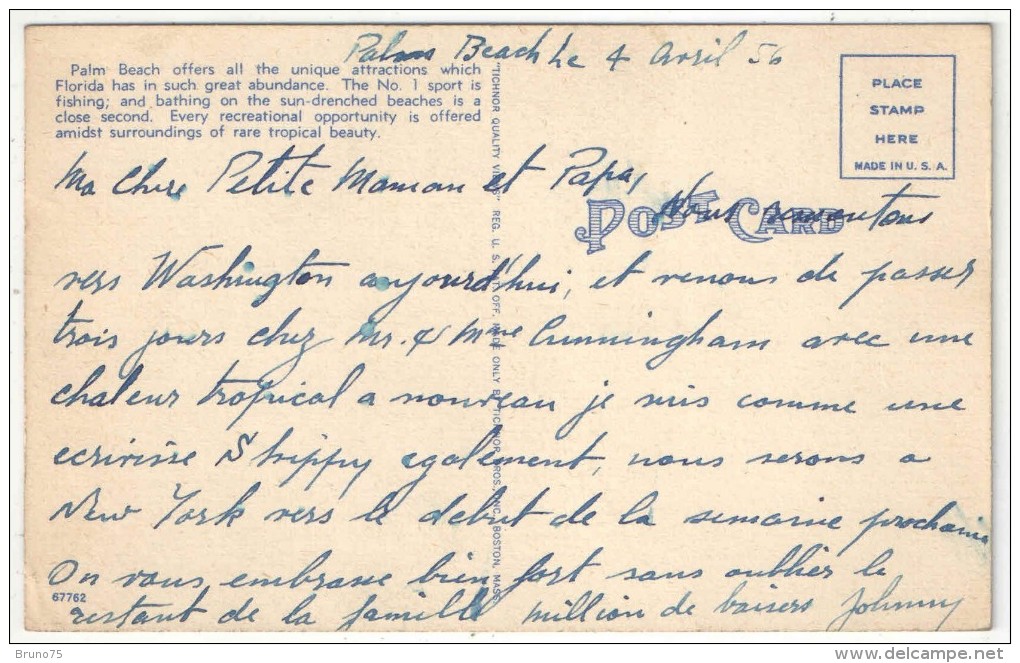 Palm Beach le 4 Avril 56
Palm Beach offers all the unique attractions which
Florida has in such great abundance. The No. 1 sport is
fishing; and bathing on the sun-drenched beaches is a
close second. Every recreational opportunity is offered
amidst surroundings of rare tropical beauty.
PLACE
STAMP
HERE
MADE IN U. S. A.
POST CARD
"TICHNOR QUALITY VIEWS" REG. U. S. PAT. OFF. MADE ONLY BY TICHNOR BROS., INC., BOSTON, MASS.
Ma Chere Petite Maman et Papa,
Nous remontons
vers Washington aujourd'hui, et venons de passer
trois jours chez Mr. & Mme Cunningham avec une
chaleur tropical a nouveau je suis comme une
ecrivisse Skippy egalement, nous serons a
New York vers le debut de la semaine prochaine
On vous embrasse bien fort sans oublier le
restant de la famille million de baisers Johnny
67762
© Bruno75
www.delcampe.net